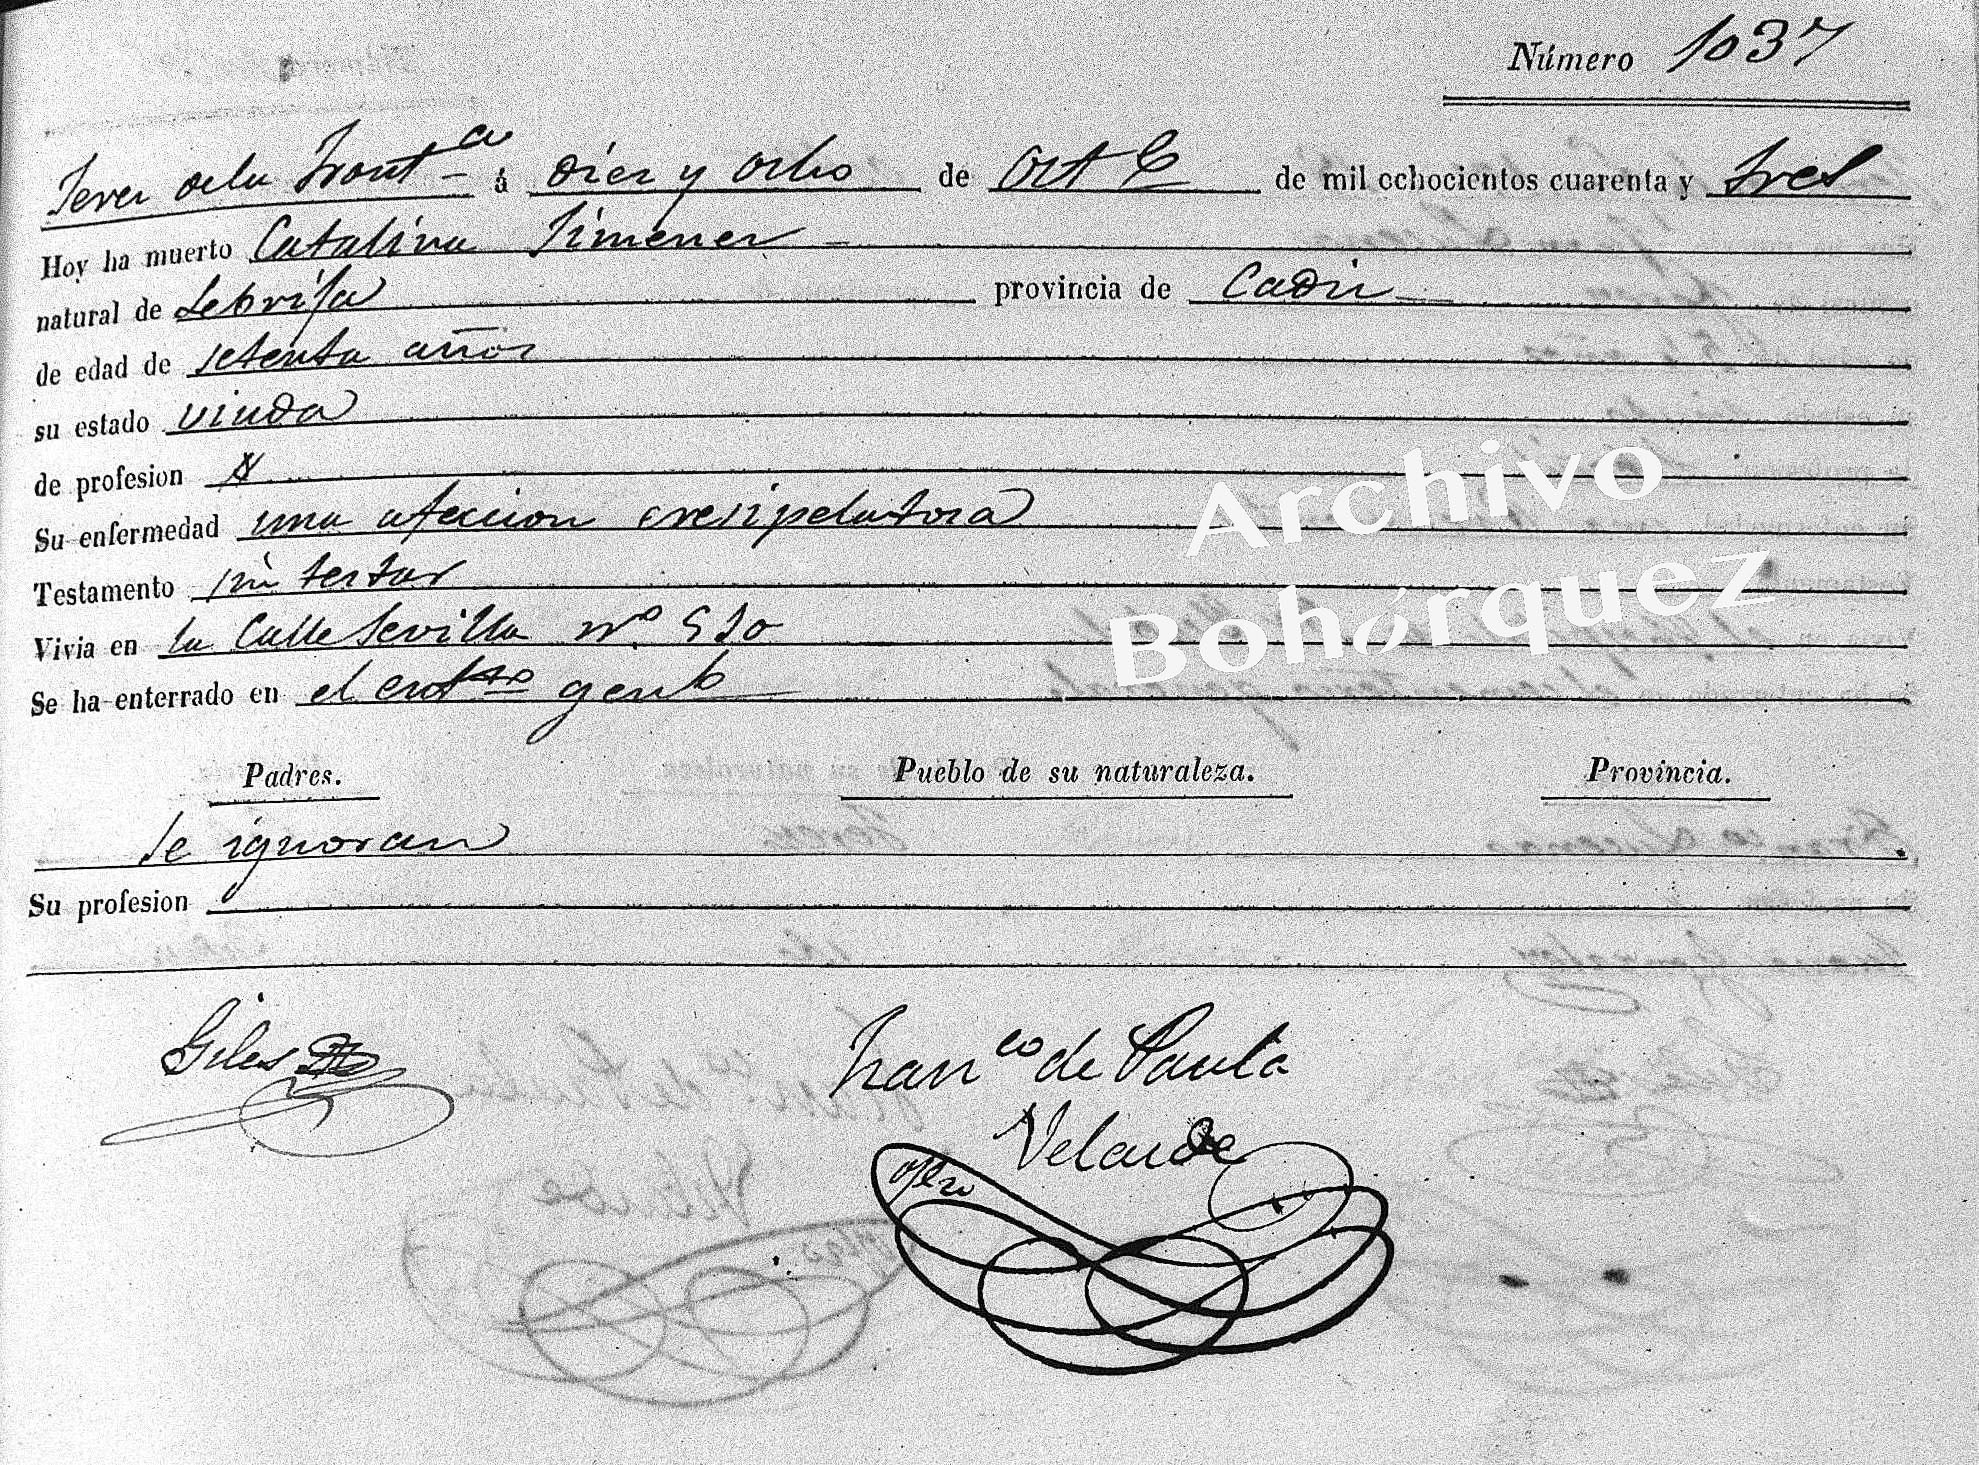 Número 1037
Jerez dela Front.ª á diez y ocho de Oct.e de mil ochocientos cuarenta y tres
Hoy ha muerto Catalina Jimenez
natural de Lebrija provincia de Cadiz
de edad de setenta años
su estado viuda
de profesion
Su enfermedad una afeccion eresipelatosa
Testamento sin testar
Vivia en la Calle Sevilla nº 510
Se ha enterrado en el
Padres. Pueblo de su naturaleza. Provincia.
se ignoran
Su profesion
Giles
Fran.co de Paula
Velarde
Archivo
Bohórquez